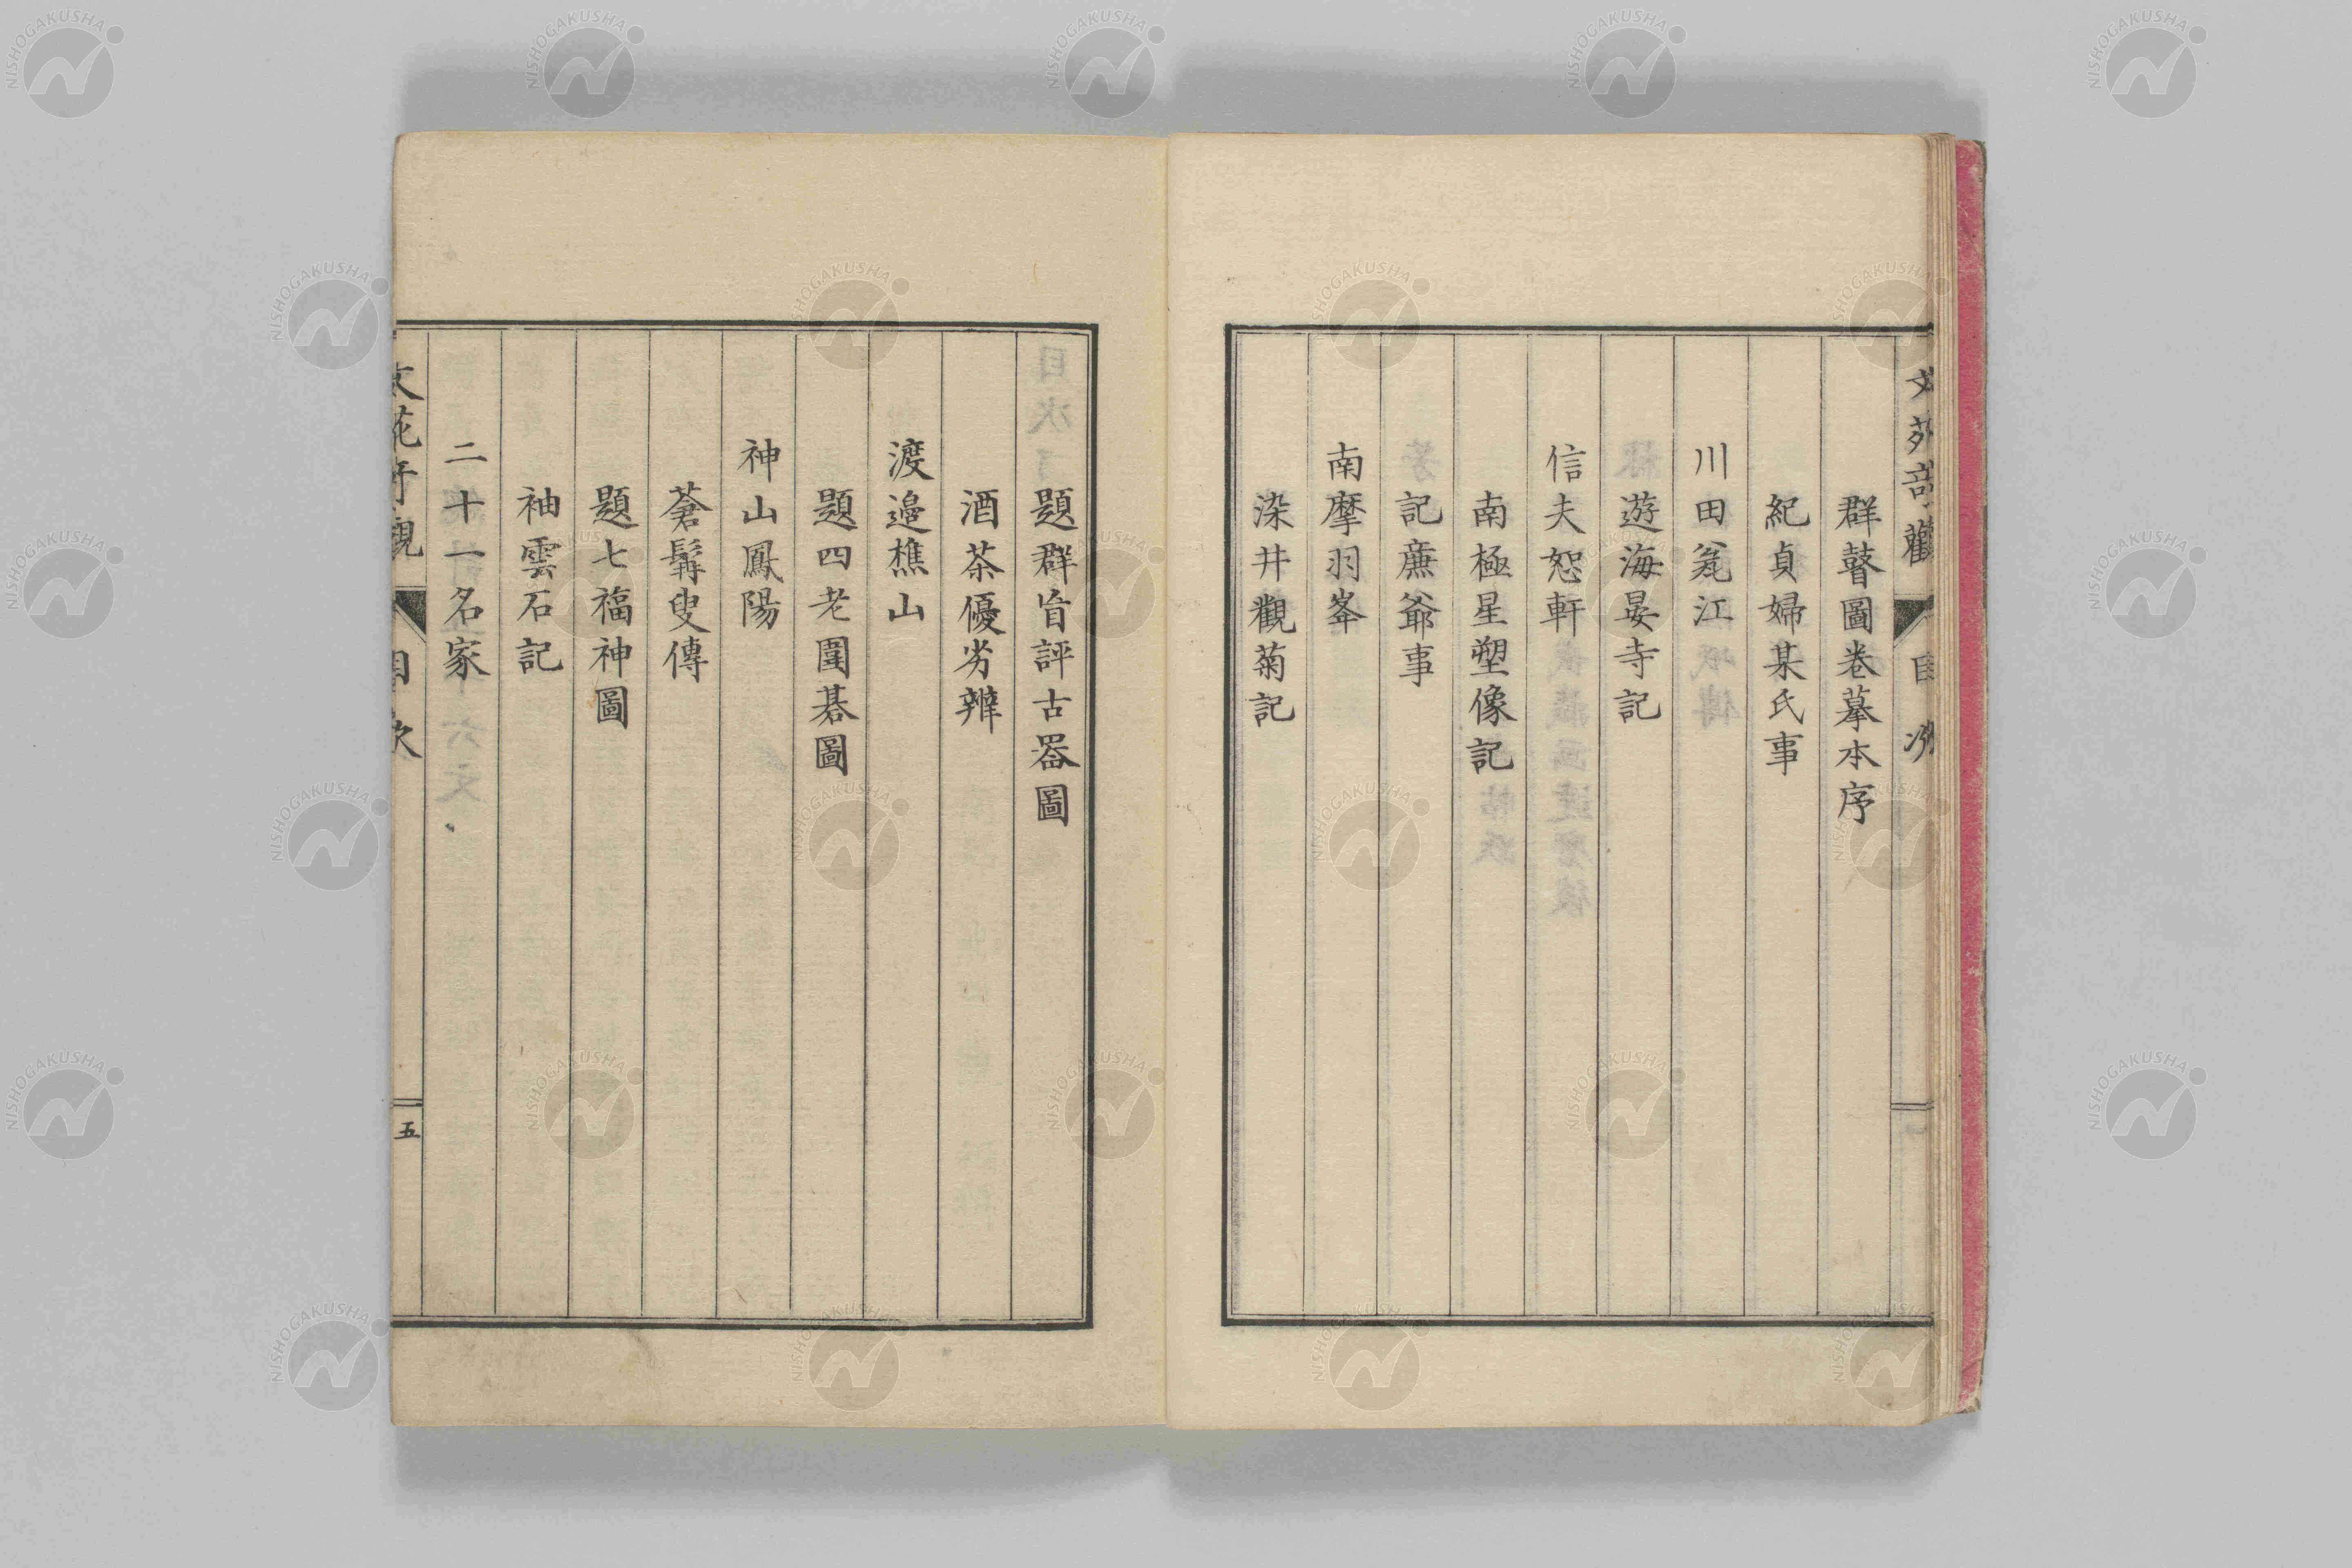 群瞽圖卷摹本序
紀貞婦某氏事
川田甕江
遊海晏寺記
信夫恕軒
南極星塑像記
記薦爺事
南摩羽峯
染井觀菊記
題群盲評古器圖
酒茶優劣辨
渡邉樵山
題四老圍碁圖
神山鳳陽
蒼髯叟傳
題七福神圖
袖雲石記
二十一名家
目次
五
NISHOGAKUSHA